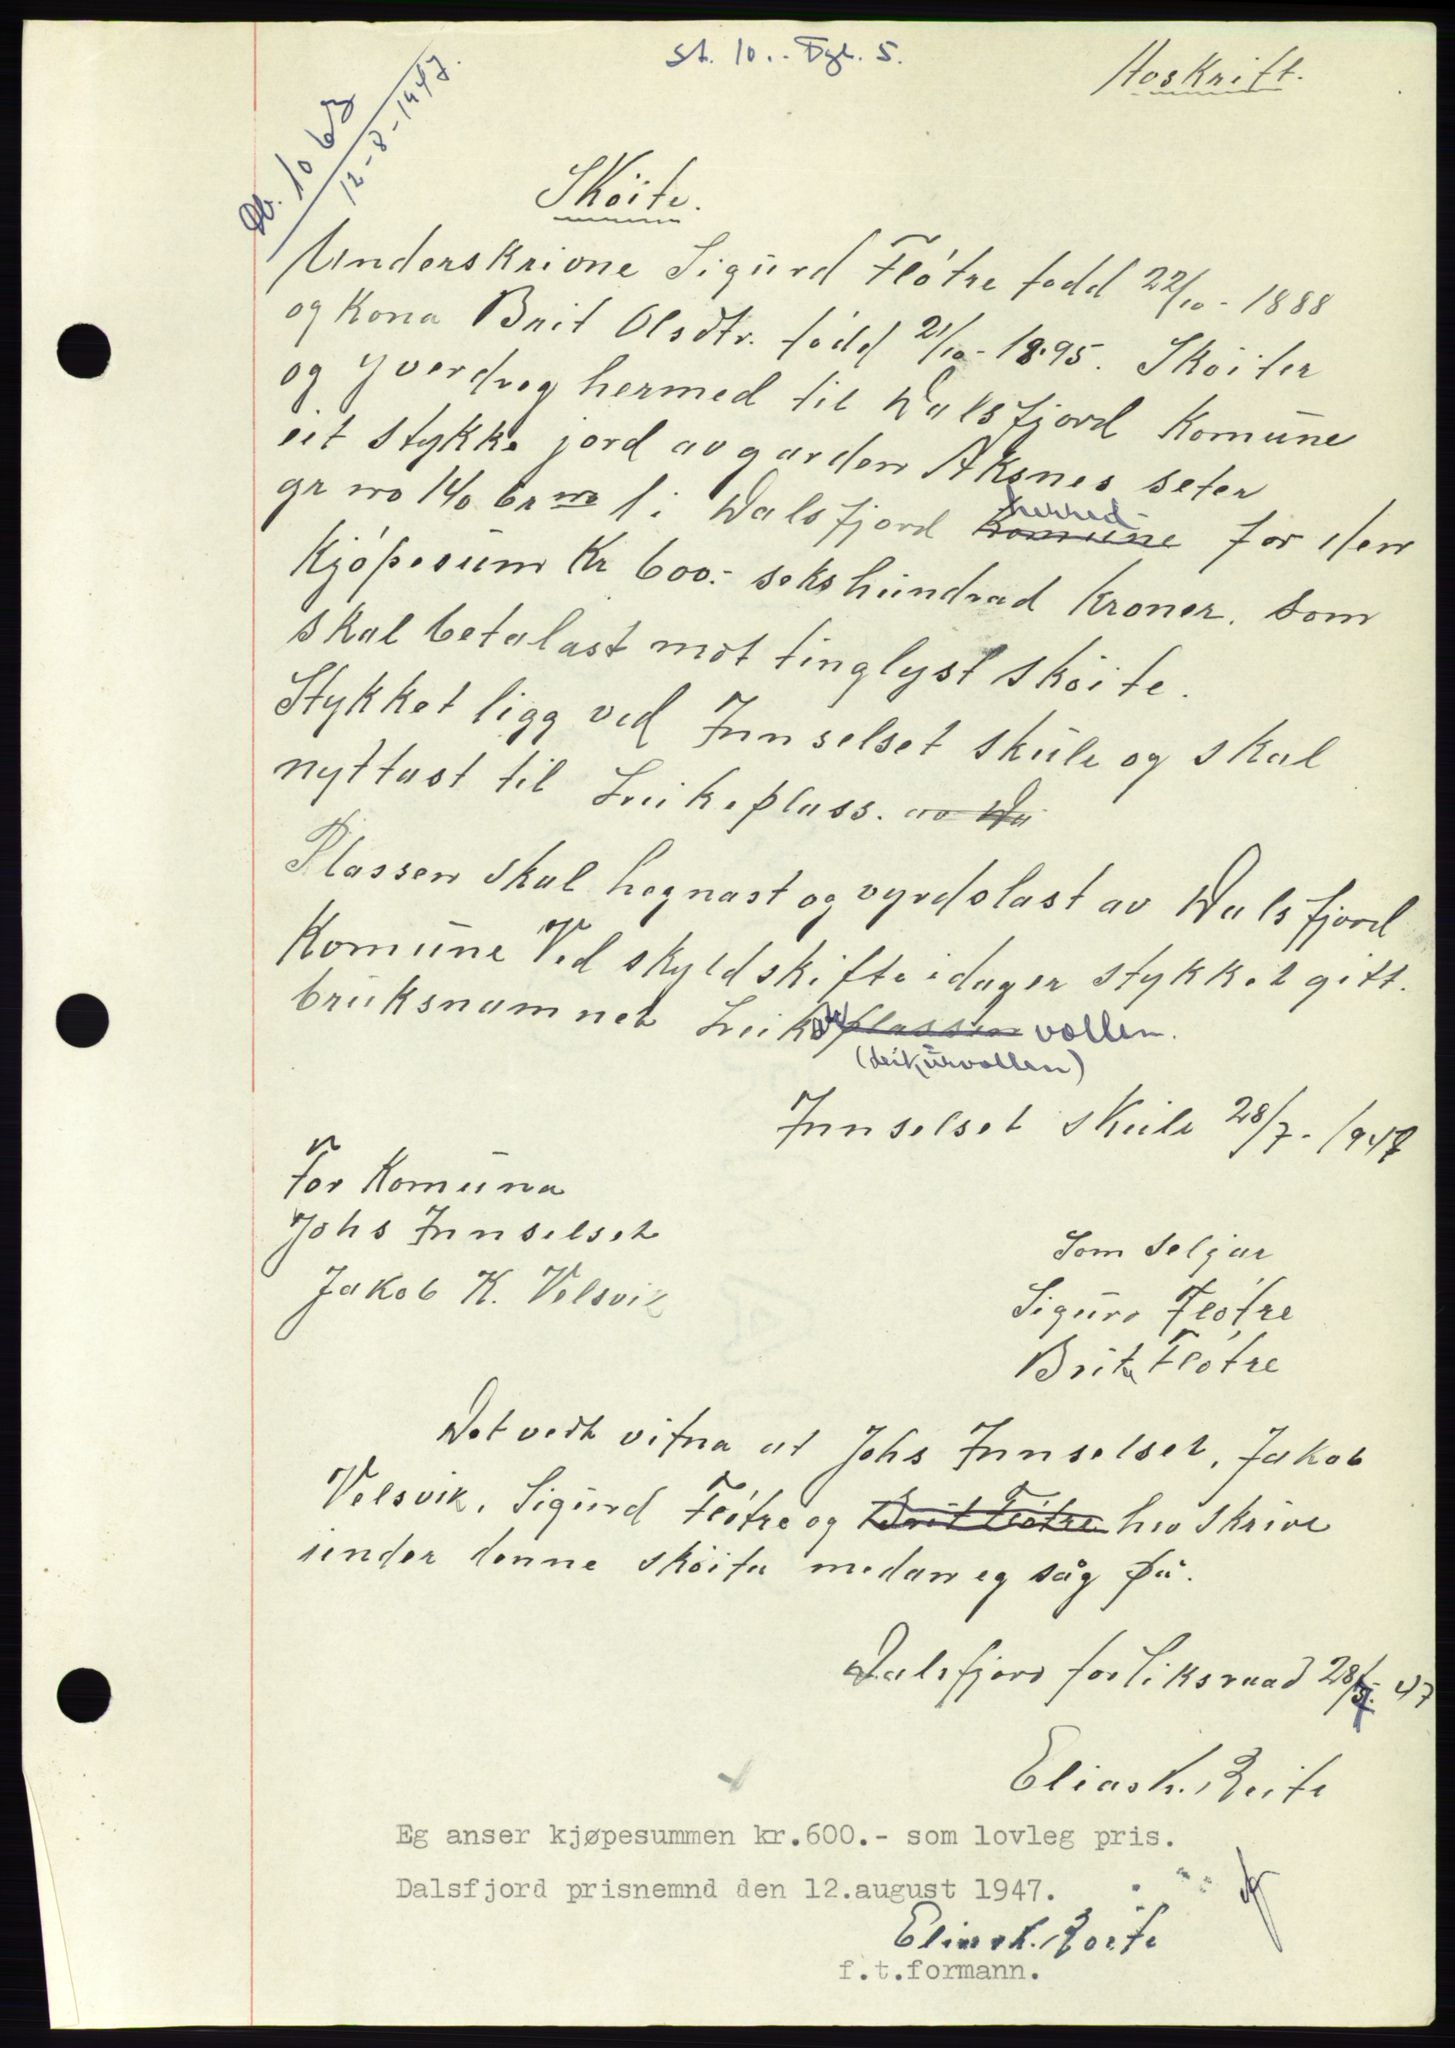 St. 10.- Tgl. 5.
Avskrift.
Db. 1063
12-8-1947.
Sköite.
Underskrivne Sigurd Flótre fødd 22/10-1888
og Kona Brit Olsdtr. fødd 21/10-1895. Sköiter
og yverdreg hermed til Dalsfjord Komune
eit stykke jord av garden Aksnes seter
gr no 140 br no 1 i Dalsfjord Komune herred for den
Kjöpesum Kr 600.- sekshundrad Kroner. som
skal betalast mot tinglyst sköite.
Stykket ligg ved Innselset skule og skal
nyttast til Leikeplass. av Da
Plassen skal hegnast og vyrdslast av Dalsfjord
Komune Ved skyldskifte idag er stykket gitt.
bruksnamnet Leik plassen vollen.
(Leikurvollen)
Innselset Skule 28/7-1947
For Komuna
Johs Innselset
Jakob K. Velsvik
Som Seljar
Sigurd Flótre
Brit Flótre
Det vert vitna at Johs Innselset, Jakob
Velsvik, Sigurd Flótre og Brit Flótre hev skrive
under denne sköita medan eg såg på.
Dalsfjord forliksraad 28/7-47
Elias K. Reite
Eg anser kjøpesummen kr.600.- som lovleg pris.
Dalsfjord prisnemnd den 12.august 1947.
Elias K. Reite
f.t.formann.